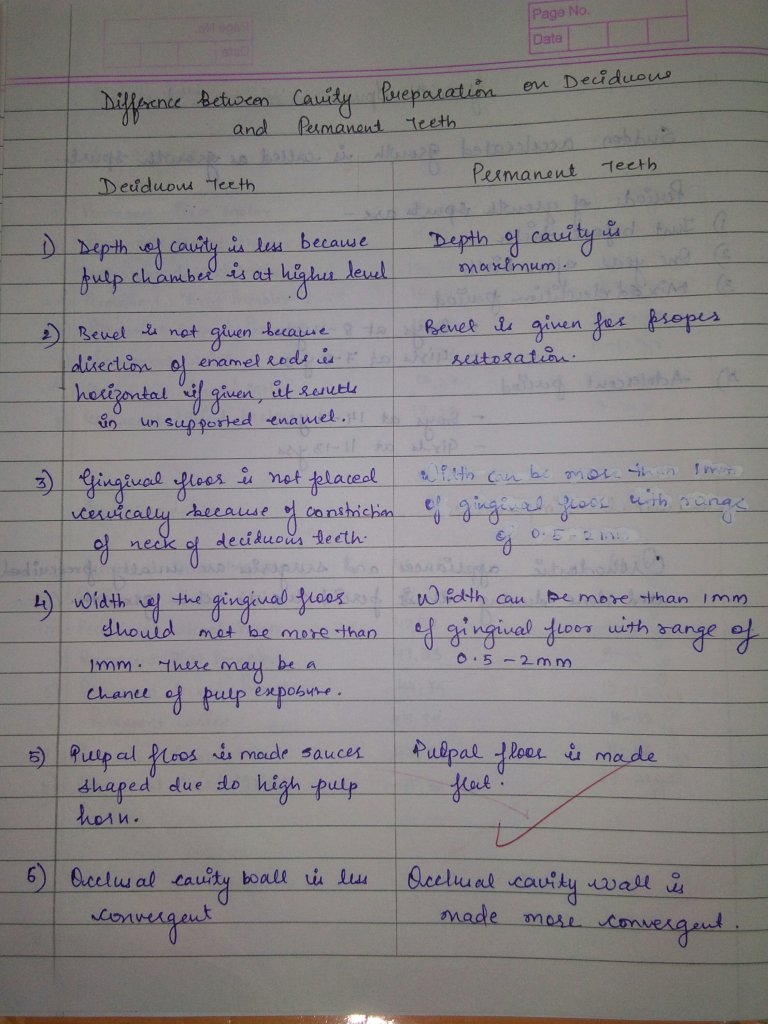 Page No.
Date
Difference Between Cavity Preparation on Deciduous
and Permanent Teeth
Deciduous Teeth
Permanent Teeth
1) Depth of cavity is less because
pulp chamber is at higher level
Depth of cavity is
maximum.
2) Bevel is not given because
direction of enamel rods is
horizontal if given, it results
in unsupported enamel.
Bevel is given for proper
restoration.
3) Gingival floor is not placed
cervically because of constriction
of neck of deciduous teeth.
Width can be more than 1mm
of gingival floor with range
of 0.5-2mm
4) Width of the gingival floor
should not be more than
1mm. There may be a
chance of pulp exposure.
Width can be more than 1mm
of gingival floor with range of
0.5-2mm
5) Pulpal floor is made saucer
shaped due to high pulp
horn.
Pulpal floor is made
flat.
6) Occlusal cavity wall is less
convergent
Occlusal cavity wall is
made more convergent.